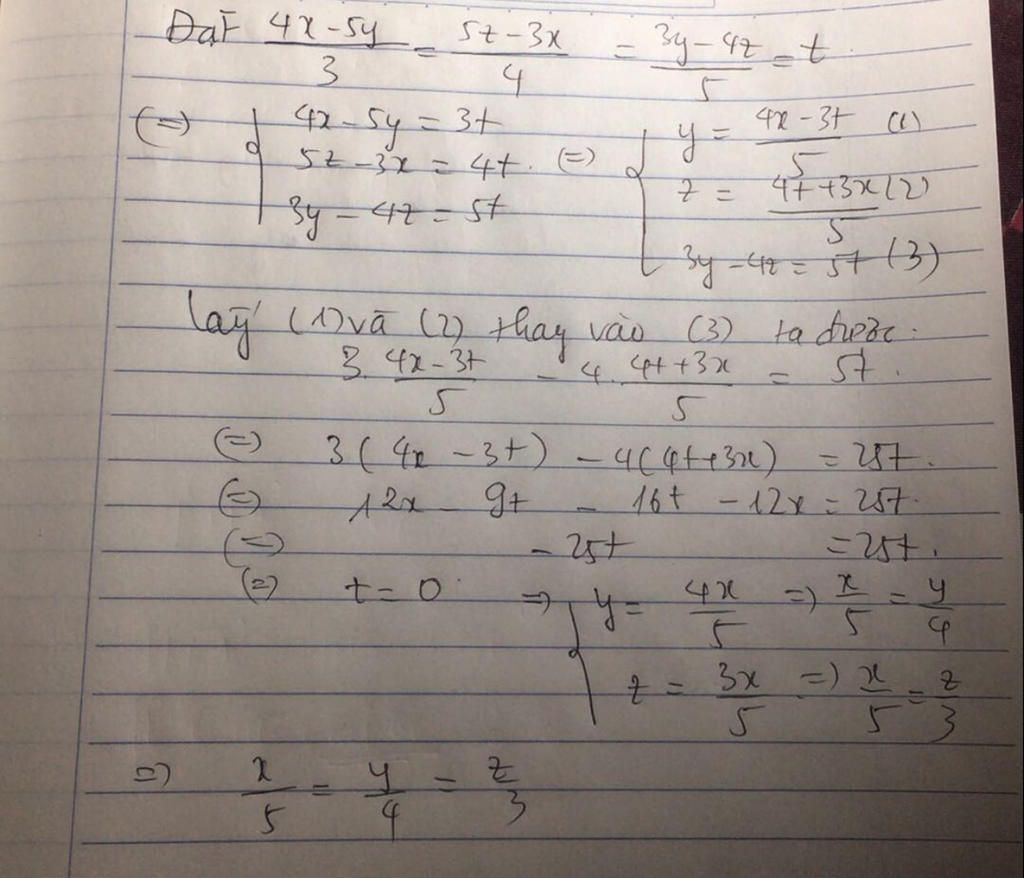 Đặt (4x-5y)/3 = (5z-3x)/4 = (3y-4z)/5 = t.
(=) { 4x-5y = 3t (=) { y = (4x-3t)/5 (1)
5z-3x = 4t. z = (4t+3x)/5 (2)
3y-4z = 5t 3y-4z = 5t (3)
lấy (1) và (2) thay vào (3) ta được:
3.(4x-3t)/5 - 4.(4t+3x)/5 = 5t.
(=) 3(4x-3t) - 4(4t+3x) = 25t.
(=) 12x - 9t - 16t - 12x = 25t.
(=) -25t = 25t.
(=) t = 0 => { y = 4x/5 => x/5 = y/4
z = 3x/5 => x/5 = z/3
=> x/5 = y/4 = z/3